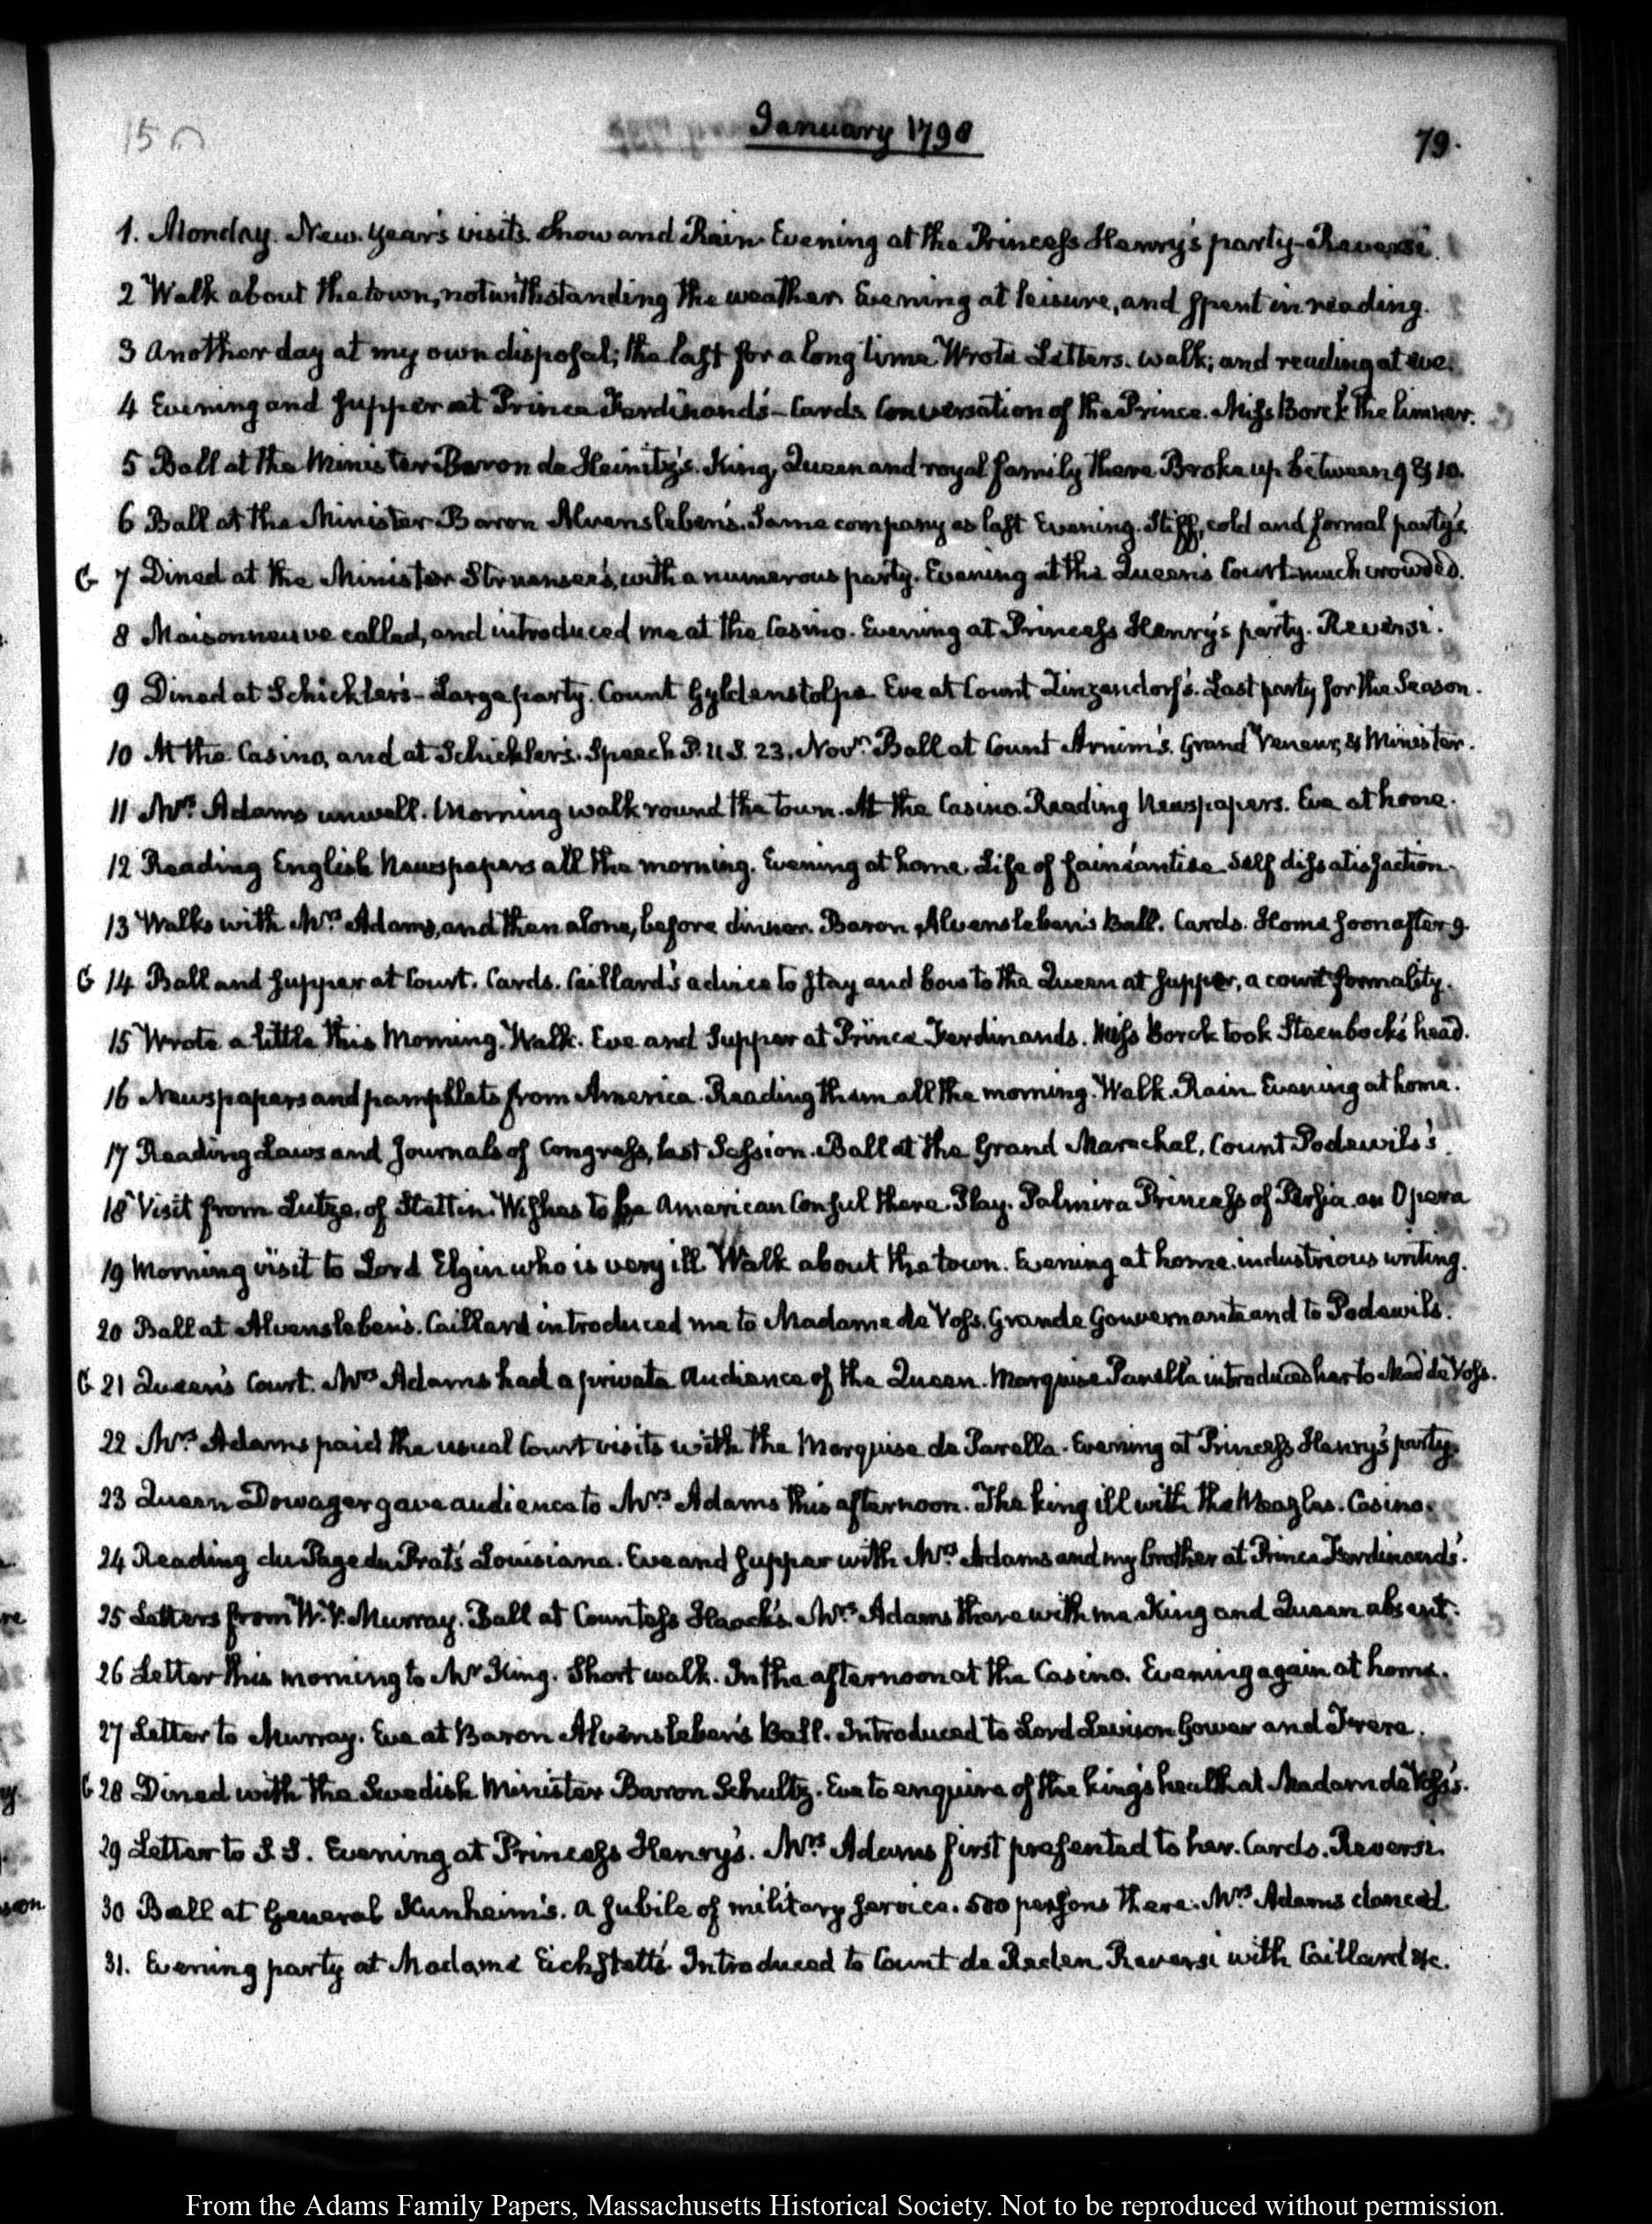 January 1798
79.
1. Monday. New. year's visits. Snow and Rain. Evening at the Princess Henry's party - Reversi.
2 Walk about the town, notwithstanding the weather. Evening at leisure, and spent in reading.
3 Another day at my own disposal; the last for a long time. Wrote Letters. walk; and reading at eve.
4 Evening and supper at Prince Ferdinand's - Cards. Conversation of the Prince. Miss Borck the limner.
5 Ball at the Minister Baron de Heinitz's. King, Queen and royal family there. Broke up between 9 & 10.
6 Ball at the Minister Baron Alvensleben's. Same company as last Evening. Stiff, cold and formal party's.
G 7 Dined at the Minister Struensee's, with a numerous party. Evening at the Queen's Court much crowded.
8 Maisonneuve called, and introduced me at the Casino. Evening at Princess Henry's party. Reversi.
9 Dined at Schickler's - Large party. Count Gyldenstolpe. Eve at Count Zinzendorf's. Last party for the Season.
10 At the Casino, and at Schickler's. Speech P. U.S. 23. Novr. Ball at Count Arnim's. Grand Veneur, & Minister.
11 Mrs. Adams unwell. Morning walk round the town. At the Casino. Reading Newspapers. Eve at home.
12 Reading English Newspapers all the morning. Evening at home. Life of faineantise. Self dissatisfaction.
13 Walks with Mrs. Adams, and then alone, before dinner. Baron Alvensleben's Ball. Cards. Home soon after 9.
G 14 Ball and supper at Court. Cards. Caillard's advice to stay and bow to the Queen at supper, a court formality.
15 Wrote a little this Morning. Walk. Eve and Supper at Prince Ferdinands. Miss Borck took Steenbock's head.
16 Newspapers and pamphlets from America. Reading them all the morning. Walk. Rain. Evening at home.
17 Reading Laws and Journals of Congress, last Session. Ball at the Grand Marechal, Count Podewils's.
18 Visit from Lutze, of Stettin. Wishes to be American Consul there. Play. Palmira Princess of Persia. an Opera
19 Morning visit to Lord Elgin who is very ill. Walk about the town. Evening at home. industrious writing.
20 Ball at Alvensleben's. Caillard introduced me to Madame de Voss, Grande Gouvernante and to Podewils.
G 21 Queen's Court. Mrs Adams had a private Audience of the Queen. Marquise Parella introduced her to Mad de Voss.
22 Mrs. Adams paid the usual Court visits with the Marquise de Parella. Evening at Princess Henry's party.
23 Queen Dowager gave audience to Mrs. Adams this afternoon. The king ill with the Meazles. Casino.
24 Reading du Page du Prat's Louisiana. Eve and supper with Mrs. Adams and my brother at Prince Ferdinands'.
25 Letters from W. V. Murray. Ball at Countess Haack's. Mrs. Adams there with me. King and Queen absent.
26 Letter this morning to Mr King. Short walk. In the afternoon at the Casino. Evening again at home.
27 Letter to Murray. Eve at Baron Alvensleben's Ball. Introduced to Lord Levison Gower and Frere.
G 28 Dined with the Swedish Minister Baron Schultz. Eve to enquire of the king's health at Madam de Voss's.
29 Letter to S. S. Evening at Princess Henry's. Mrs Adams first presented to her. Cards. Reversi.
30 Ball at General Kunheim's. A Jubile of military service. 500 persons there. Mrs Adams danced.
31. Evening party at Madame Eichstett's. Introduced to Count de Reden. Reversi with Caillard &c.
From the Adams Family Papers, Massachusetts Historical Society. Not to be reproduced without permission.